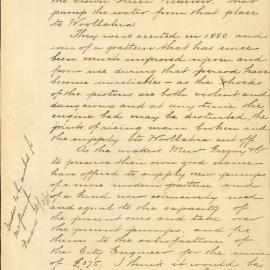 the Crown Street Reservoir that
pump the water from that place
to Woollahra
They were erected in 1880 and
were of a pattern that has since
been much improved upon, and
from use during that period have
become unreliable as the
of the pistons are both violent and
dangerous and at any time the
engine bed may be disturbed, the
joints of rising main broken and
the supply to Woollahra cut off.
As the makers Mess
to preserve their own good name
have offered to supply new pumps
of a more modern pattern and
of a kind now commonly used
and equal to the capacity of
the present ones and take over
the present pumps, and fix
them to the satisfaction of
the City Engineer for the sum
of £375. I think it would be